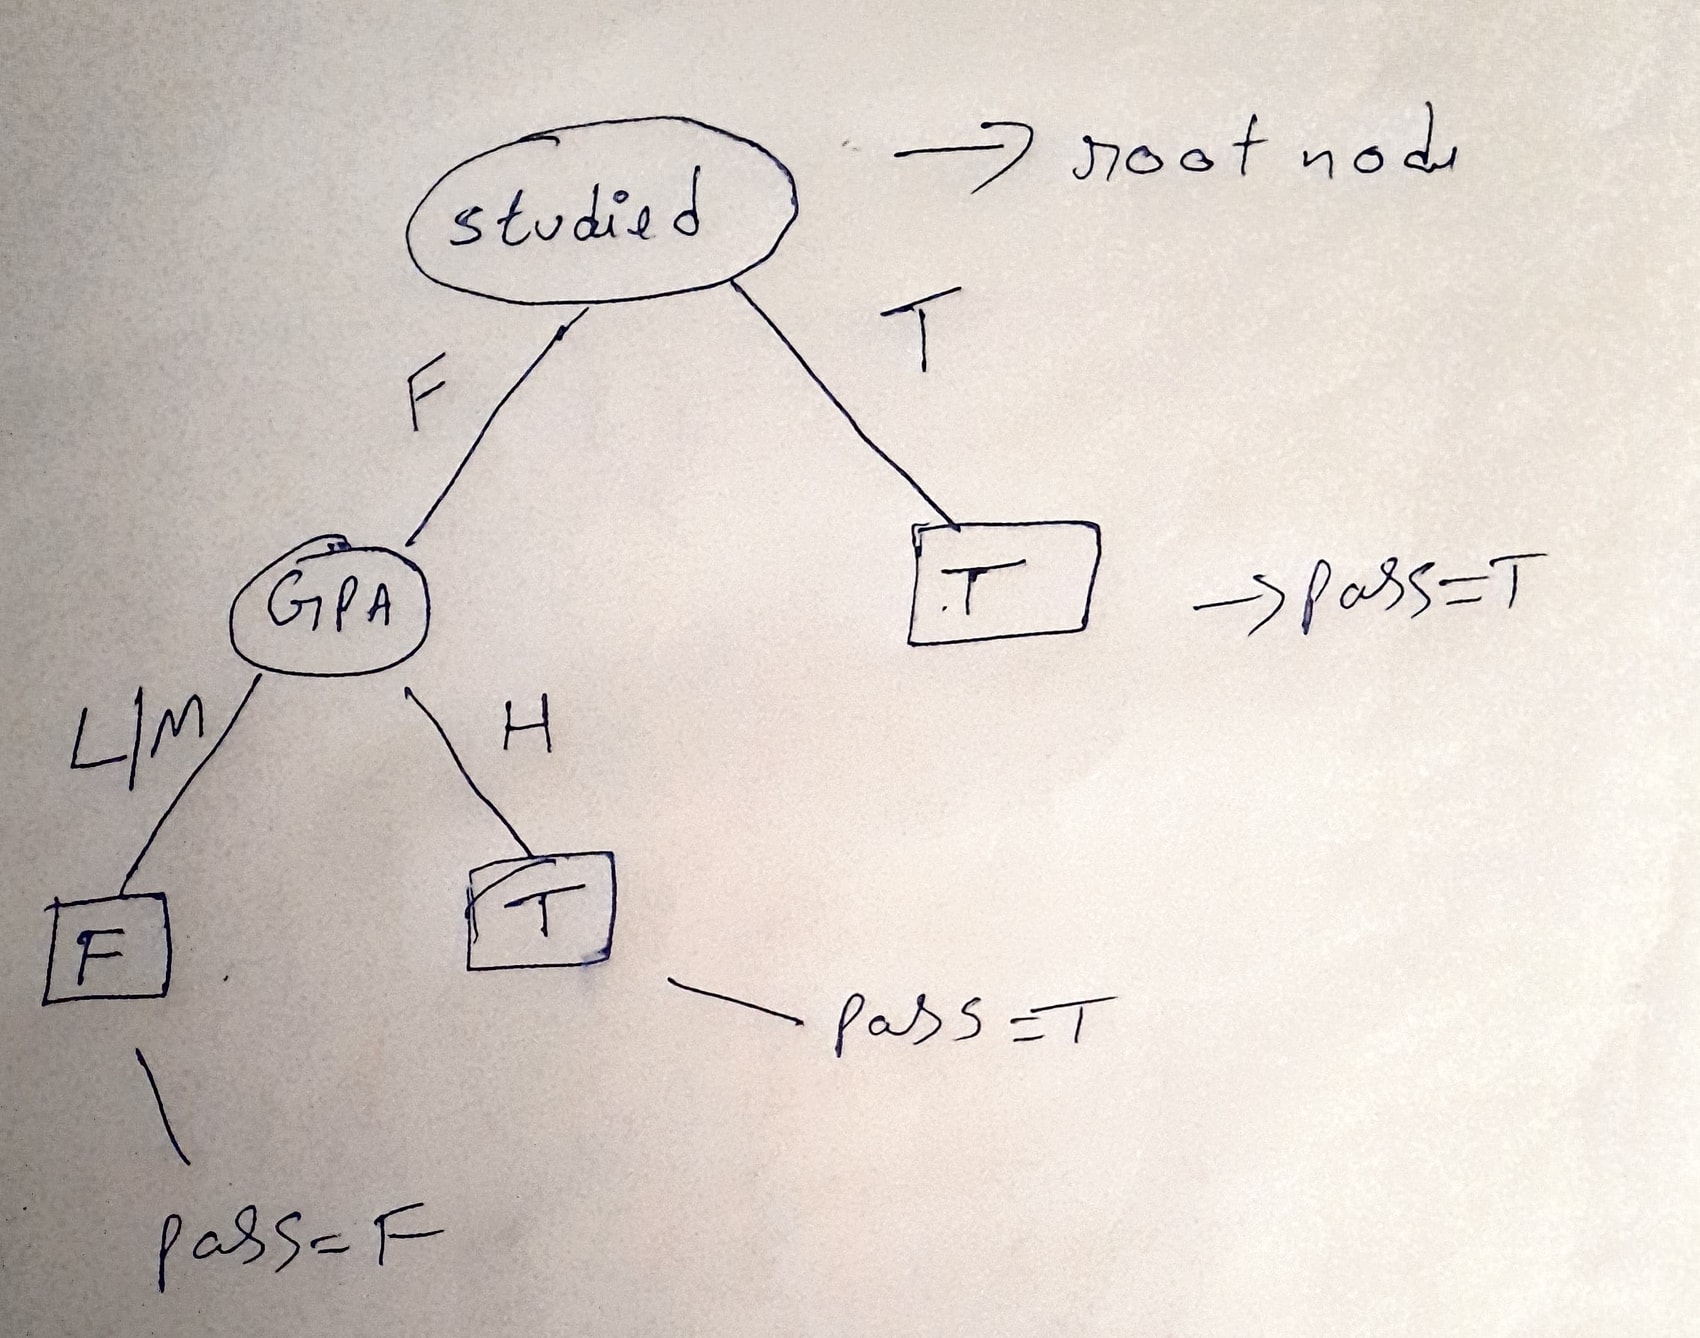 studied → root node
F
T
GPA
T
→ pass=T
L/M
H
F
T
pass=T
pass=F